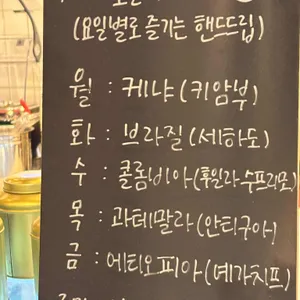 (요일별로 즐기는 핸드드립)
월 : 케냐 (키암부)
화 : 브라질 (세하도)
수 : 콜롬비아 (후일라 수프리모)
목 : 과테말라 (안티구아)
금 : 에티오피아 (예가치프)